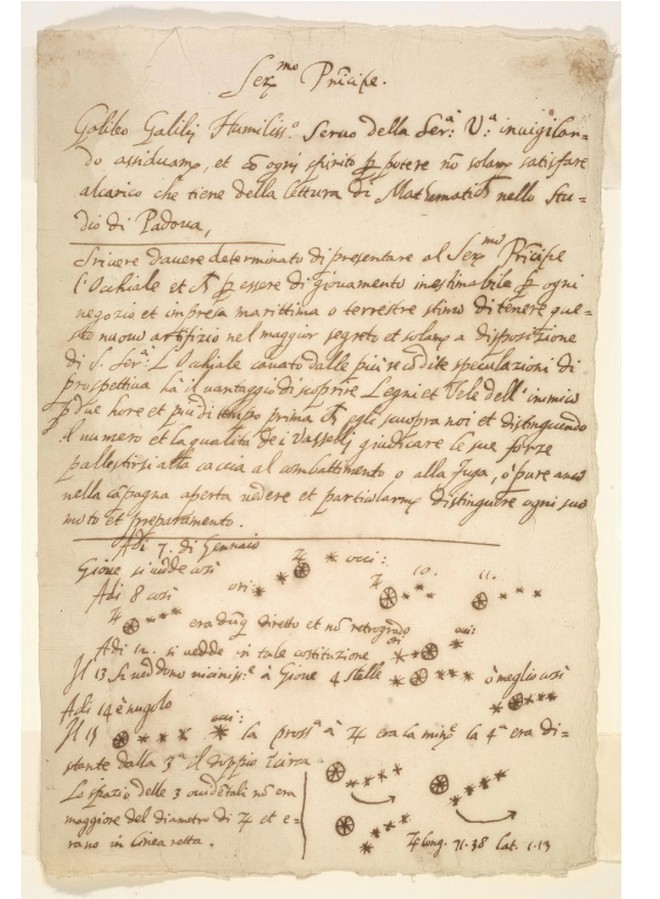 Ser.mo Prīcipe.
Galileo Galilej Humiliss.o Servo della Ser:a V:a invigilan=
do assiduam.e, et cō ogni spirito p potere nō solam.e satisfare
alcarico che tiene della lettura di Mathematich nello Stu=
dio di Padova,
Scrivere davere determinato di presentare al Ser.mo Prīcipe
l'Occhiale et ch p essere di giovamento inestimabile p ogni
negozio et impresa marittima o terrestre stimo di tenere que=
sto nuovo artifizio nel maggior segreto et solam.e a disposizione
di S. Ser:a L Occhiale cavato dalle piu recōdite speculazioni di
prospettiva hà il vantaggio di scoprire Legni et Vele dell'inimico
p due hore et piu di tempo prima ch egli scuopra noi et distinguendo
il numero et la qualita dei Vasselli giudicare le sue forze
pallestirsi alla caccia al combattimento o alla fuga, ò pure anco
nella cāpagna aperta vedere et particolarm.e distinguere ogni suo
moto et preparamento.
Adi 7. di Gennaio
Gioue si vedde così ♃ * occi:
Adi 8 così ori: * * ♃ 10. * * 11. * * *
♃ * * * era dūq diretto et nō retrogrado
Adi 12. si vedde in tale costituzione ori * * * occi:
Il 13 si veddono vicinis.e à Giove 4 stelle * * * * ò meglio così
Adi 14 è nugolo
Il 15 * * * * occi: la pross.a à ♃ era la min.e la 4.a era di=
stante dalla 3.a il doppio Ĩcirca
Lo spazio delle 3 occidētali nō era
maggiore del diametro di ♃ et e=
rano in linea retta.
♃ long. 71.38 Lat. 1.13